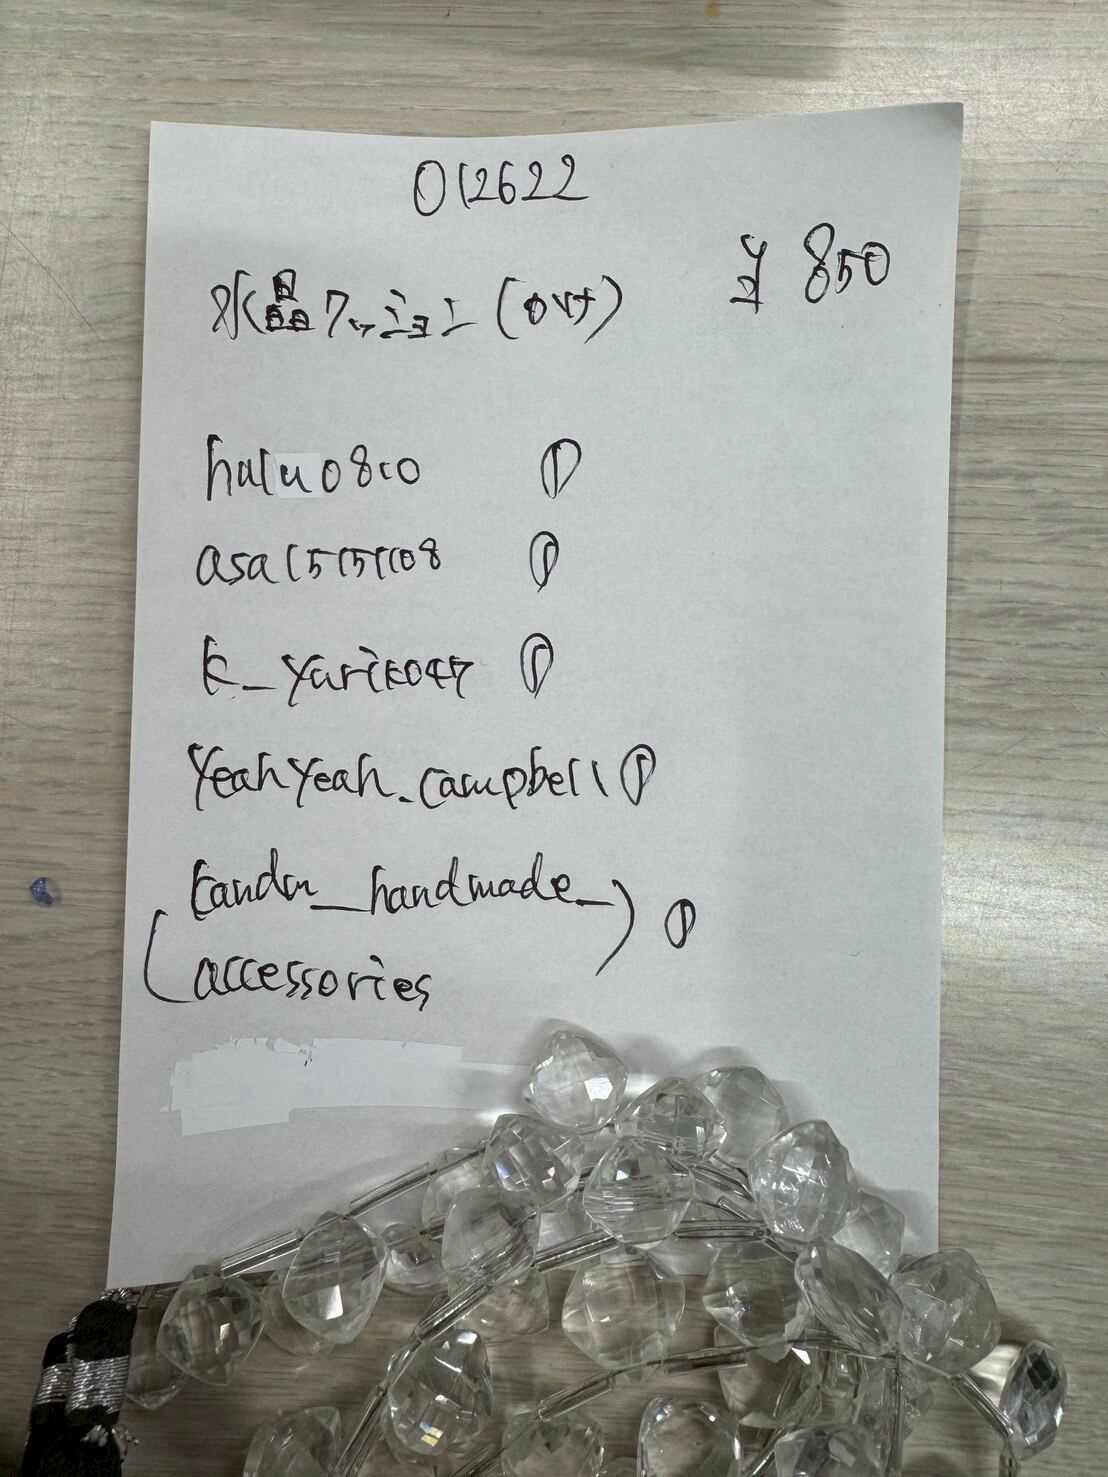 012622
水晶クッション(カット) ¥850
halu0810 ①
asa15151108 ①
k_yuriko47 ①
yeahyeah.campbell ①
(kandm_handmade_
accessories) ①